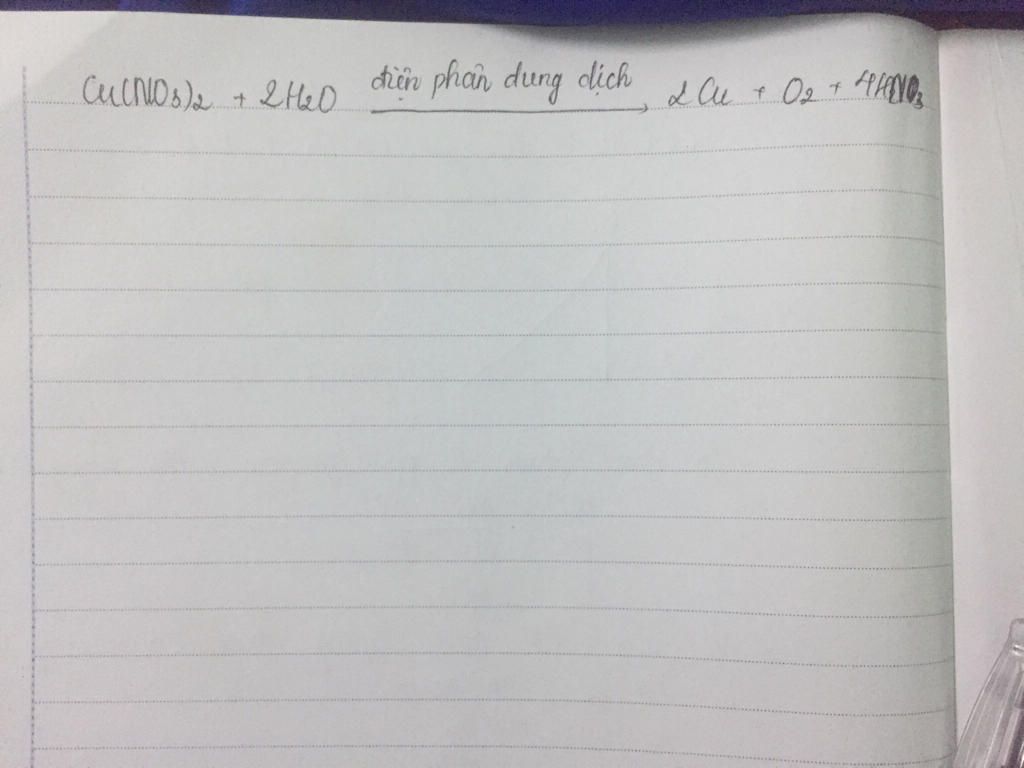 Cu(NO3)2 + 2H2O điện phân dung dịch → 2Cu + O2 + 4HNO3